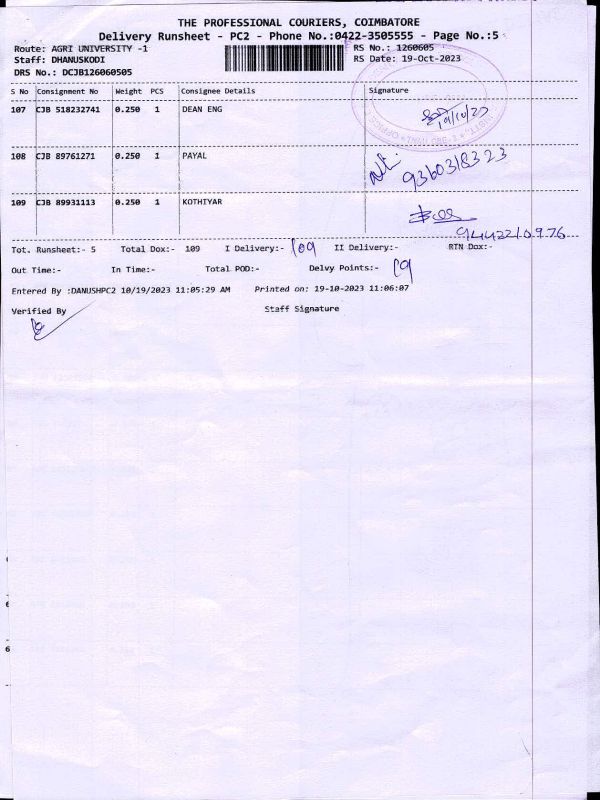 THE PROFESSIONAL COURIERS, COIMBATORE
Delivery Runsheet - PC2 - Phone No.:0422-3505555 - Page No.:5
Route: AGRI UNIVERSITY -1 RS No.: 1260605
Staff: DHANUSKODI RS Date: 19-Oct-2023
DRS No.: DCJB126060505
S No Consignment No Weight PCS Consignee Details Signature
107 CJB 518232741 0.250 1 DEAN ENG
19/10/23
108 CJB 89761271 0.250 1 PAYAL
9360318323
109 CJB 89931113 0.250 1 KOTHIYAR
9442210976
Tot. Runsheet:- 5 Total Dox:- 109 I Delivery:- 109 II Delivery:- RTN Dox:-
Out Time:- In Time:- Total POD:- Delvy Points:- 19
Entered By :DANUSHPC2 10/19/2023 11:05:29 AM Printed on: 19-10-2023 11:06:07
Verified By Staff Signature